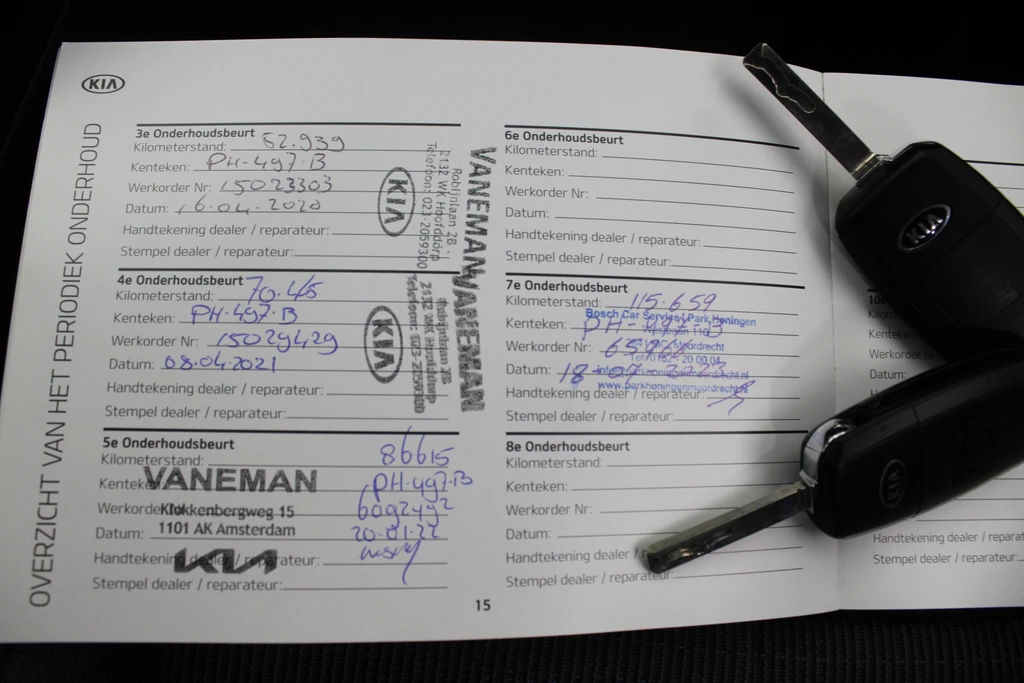 KIA
OVERZICHT VAN HET PERIODIEK ONDERHOUD
3e Onderhoudsbeurt
Kilometerstand: 52.939
Kenteken: PH-497-B
Werkorder Nr: 15023303
Datum: 16.04.2020
Handtekening dealer / reparateur:
Stempel dealer / reparateur:
VANEMAN
Robijnlaan 28
2132 WK Hoofddorp
Telefoon: 023-2059300
KIA
4e Onderhoudsbeurt
Kilometerstand:
Kenteken: PH-497-B
Werkorder Nr: 15029429
Datum: 08.04.2021
Handtekening dealer / reparateur:
Stempel dealer / reparateur:
VANEMAN
Robijnlaan 28
2132 WK Hoofddorp
Telefoon: 023-2059300
KIA
5e Onderhoudsbeurt
Kilometerstand: 86615
Kenteken: PH-497-B
Werkorder 6092492
Datum: 20-01-22
Handtekening dealer / reparateur:
Stempel dealer / reparateur:
VANEMAN
Klokkenbergweg 15
1101 AK Amsterdam
KIA
15
6e Onderhoudsbeurt
Kilometerstand:
Kenteken:
Werkorder Nr:
Datum:
Handtekening dealer / reparateur:
Stempel dealer / reparateur:
7e Onderhoudsbeurt
Kilometerstand: 115.659
Kenteken: PH-497-B
Werkorder Nr:
Datum:
Handtekening dealer / reparateur:
Stempel dealer / reparateur:
Bosch Car Service Park Honingen
Moordrecht
www.parkhoningenmoordrecht.nl
8e Onderhoudsbeurt
Kilometerstand:
Kenteken:
Werkorder Nr:
Datum:
Handtekening dealer /
Stempel dealer / reparateur:
Datum:
Handtekening dealer /
Stempel dealer / reparateur:
KIA
KIA